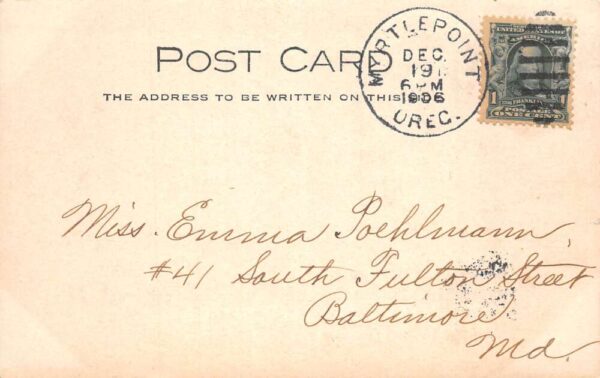 POST CARD
THE ADDRESS TO BE WRITTEN ON THIS SIDE
MYRTLEPOINT
DEC.
19
6 PM
1906
OREG.
UNITED STATES OF
AMERICA
1 FRANKLIN 1
POSTAGE
ONE CENT
Miss. Emma Poehlmann,
#41 South Fulton Street
Baltimore
Md.